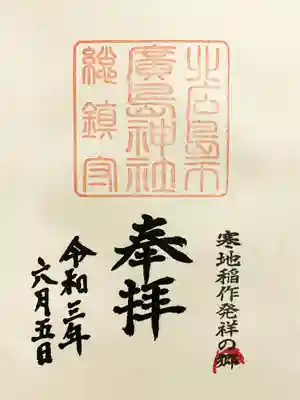 北広島市
廣島神社
総鎮守
寒地稲作発祥の郷
奉拝
令和三年
六月五日